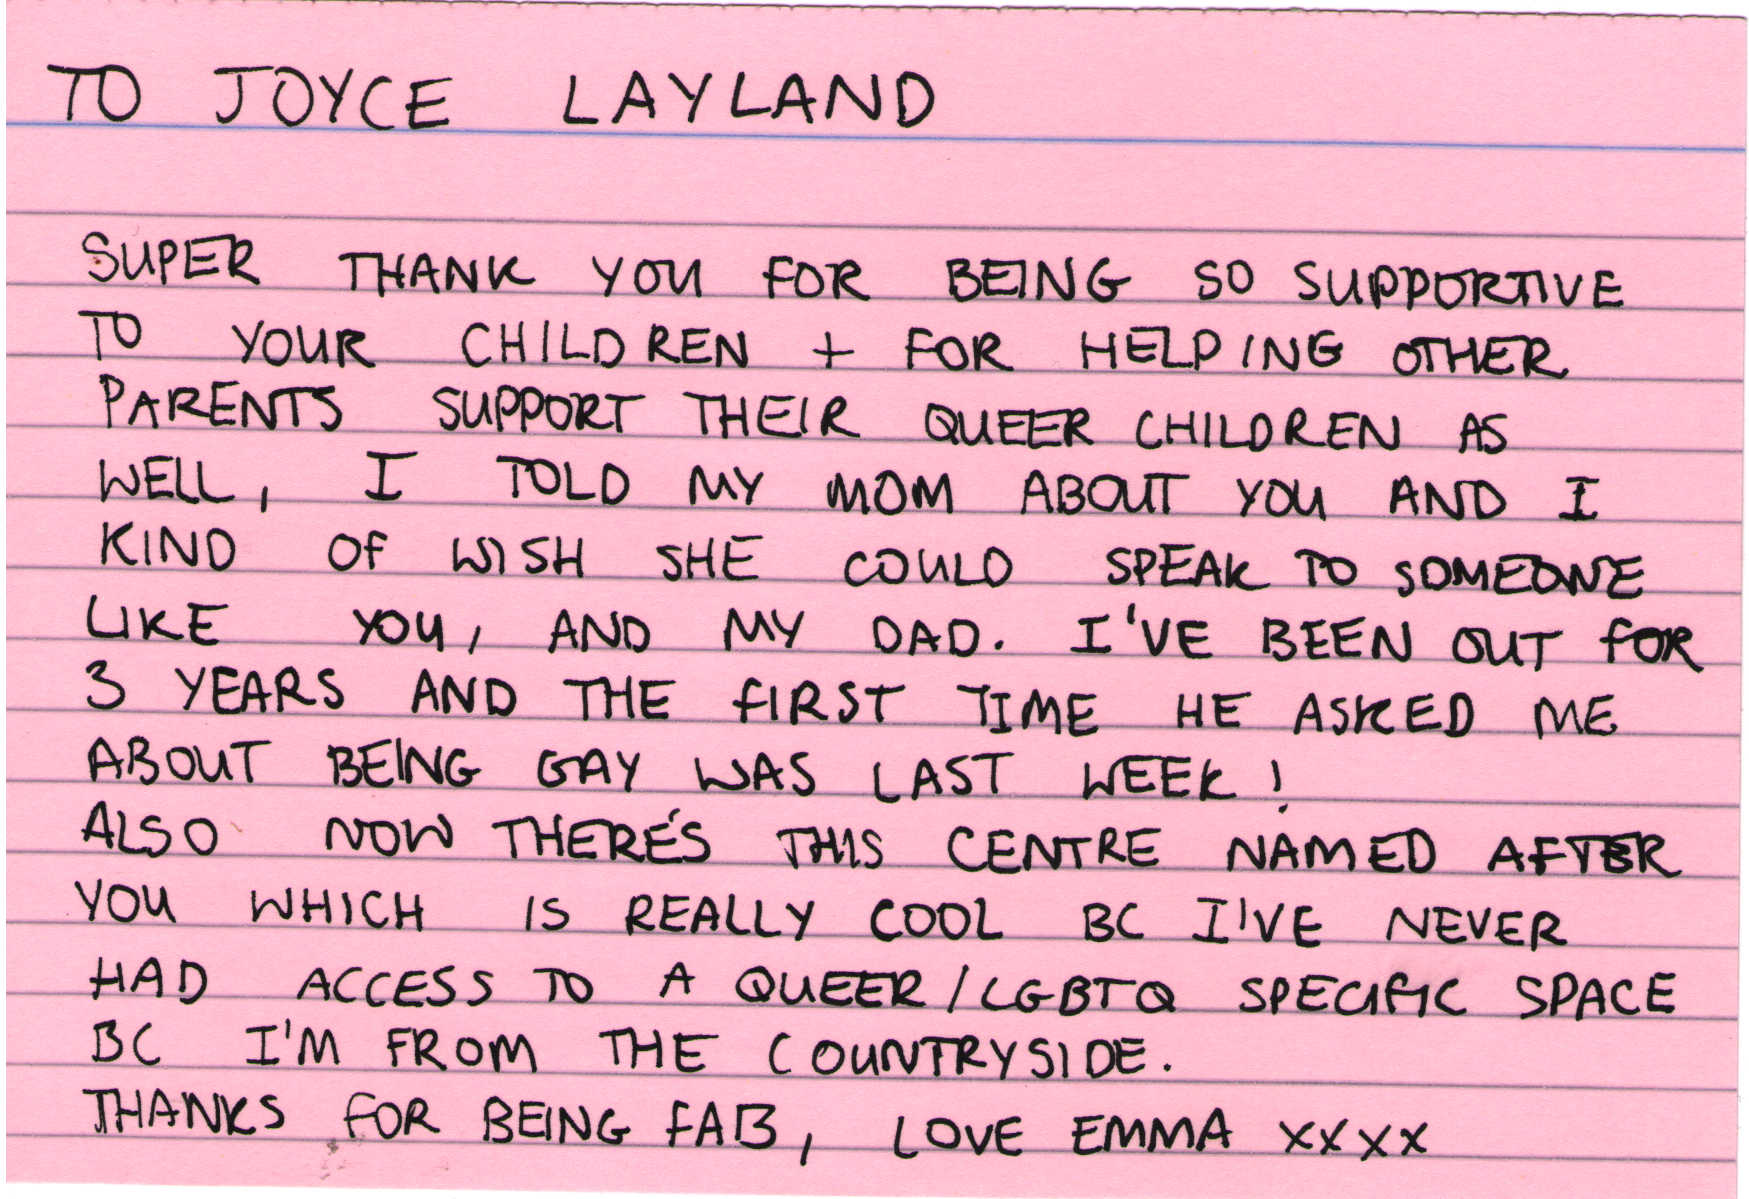 TO JOYCE LAYLAND
SUPER THANK YOU FOR BEING SO SUPPORTIVE
TO YOUR CHILDREN + FOR HELPING OTHER
PARENTS SUPPORT THEIR QUEER CHILDREN AS
WELL, I TOLD MY MOM ABOUT YOU AND I
KIND OF WISH SHE COULD SPEAK TO SOMEONE
LIKE YOU, AND MY DAD. I'VE BEEN OUT FOR
3 YEARS AND THE FIRST TIME HE ASKED ME
ABOUT BEING GAY WAS LAST WEEK!
ALSO NOW THERE'S THIS CENTRE NAMED AFTER
YOU WHICH IS REALLY COOL BC I'VE NEVER
HAD ACCESS TO A QUEER/LGBTQ SPECIFIC SPACE
BC I'M FROM THE COUNTRYSIDE.
THANKS FOR BEING FAB, LOVE EMMA XXXX